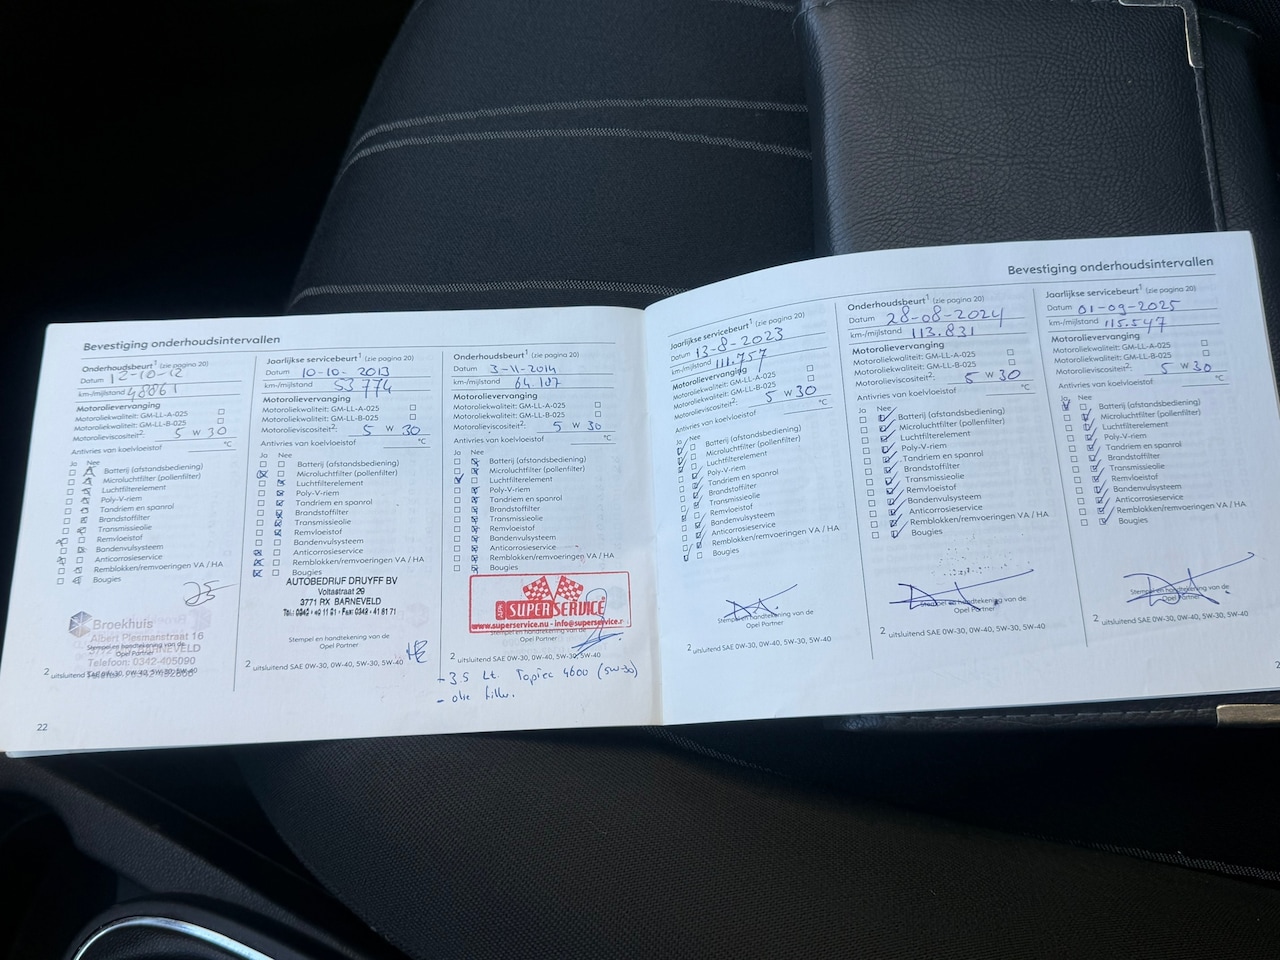 Bevestiging onderhoudsintervallen
Onderhoudsbeurt¹ (zie pagina 20)
Datum 12-10-12
km-/mijlstand 48861
Motorolievervanging
Motoroliekwaliteit: GM-LL-A-025
Motoroliekwaliteit: GM-LL-B-025
Motorolieviscositeit²: 5 W 30
Antivries van koelvloeistof °C
Ja Nee
Batterij (afstandsbediening)
Microluchtfilter (pollenfilter)
Luchtfilterelement
Poly-V-riem
Tandriem en spanrol
Brandstoffilter
Transmissieolie
Remvloeistof
Bandenvulsysteem
Anticorrosieservice
Remblokken/remvoeringen VA / HA
Bougies
Broekhuis
Albert Plesmanstraat 16
Stempel en handtekening van de
Opel Partner
Telefoon: 0342-405090
² uitsluitend SAE 0W-30, 0W-40, 5W-30, 5W-40
22
Jaarlijkse servicebeurt¹ (zie pagina 20)
Datum 10-10-2013
km-/mijlstand 53774
Motorolievervanging
Motoroliekwaliteit: GM-LL-A-025
Motoroliekwaliteit: GM-LL-B-025
Motorolieviscositeit²: 5 W 30
Antivries van koelvloeistof °C
Ja Nee
Batterij (afstandsbediening)
Microluchtfilter (pollenfilter)
Luchtfilterelement
Poly-V-riem
Tandriem en spanrol
Brandstoffilter
Transmissieolie
Remvloeistof
Bandenvulsysteem
Anticorrosieservice
Remblokken/remvoeringen VA / HA
Bougies
AUTOBEDRIJF DRUYFF BV
Voltastraat 29
3771 RX BARNEVELD
Stempel en handtekening van de
Opel Partner
² uitsluitend SAE 0W-30, 0W-40, 5W-30, 5W-40
Onderhoudsbeurt¹ (zie pagina 20)
Datum 3-11-2014
km-/mijlstand 64.107
Motorolievervanging
Motoroliekwaliteit: GM-LL-A-025
Motoroliekwaliteit: GM-LL-B-025
Motorolieviscositeit²: 5 W 30
Antivries van koelvloeistof °C
Ja Nee
Batterij (afstandsbediening)
Microluchtfilter (pollenfilter)
Luchtfilterelement
Poly-V-riem
Tandriem en spanrol
Brandstoffilter
Transmissieolie
Remvloeistof
Bandenvulsysteem
Anticorrosieservice
Remblokken/remvoeringen VA / HA
Bougies
SUPERSERVICE
www.superservice.nu - info@superservice.
Stempel en handtekening van de
Opel Partner
² uitsluitend SAE 0W-30, 0W-40, 5W-30, 5W-40
- 3.5 Lt. Toptec 4600 (5W-30)
- olie filter.
Bevestiging onderhoudsintervallen
Jaarlijkse servicebeurt¹ (zie pagina 20)
Datum 13-8-2023
km-/mijlstand 111.757
Motorolievervanging
Motoroliekwaliteit: GM-LL-A-025
Motoroliekwaliteit: GM-LL-B-025
Motorolieviscositeit²: 5 W 30
Antivries van koelvloeistof °C
Ja Nee
Batterij (afstandsbediening)
Microluchtfilter (pollenfilter)
Luchtfilterelement
Poly-V-riem
Tandriem en spanrol
Brandstoffilter
Transmissieolie
Remvloeistof
Bandenvulsysteem
Anticorrosieservice
Remblokken/remvoeringen VA / HA
Bougies
Stempel en handtekening van de
Opel Partner
² uitsluitend SAE 0W-30, 0W-40, 5W-30, 5W-40
Onderhoudsbeurt¹ (zie pagina 20)
Datum 28-08-2024
km-/mijlstand 113.831
Motorolievervanging
Motoroliekwaliteit: GM-LL-A-025
Motoroliekwaliteit: GM-LL-B-025
Motorolieviscositeit²: 5 W 30
Antivries van koelvloeistof °C
Ja Nee
Batterij (afstandsbediening)
Microluchtfilter (pollenfilter)
Luchtfilterelement
Poly-V-riem
Tandriem en spanrol
Brandstoffilter
Transmissieolie
Remvloeistof
Bandenvulsysteem
Anticorrosieservice
Remblokken/remvoeringen VA / HA
Bougies
Stempel en handtekening van de
Opel Partner
² uitsluitend SAE 0W-30, 0W-40, 5W-30, 5W-40
Jaarlijkse servicebeurt¹ (zie pagina 20)
Datum 01-09-2025
km-/mijlstand 115.547
Motorolievervanging
Motoroliekwaliteit: GM-LL-A-025
Motoroliekwaliteit: GM-LL-B-025
Motorolieviscositeit²: 5 W 30
Antivries van koelvloeistof °C
Ja Nee
Batterij (afstandsbediening)
Microluchtfilter (pollenfilter)
Luchtfilterelement
Poly-V-riem
Tandriem en spanrol
Brandstoffilter
Transmissieolie
Remvloeistof
Bandenvulsysteem
Anticorrosieservice
Remblokken/remvoeringen VA / HA
Bougies
Stempel en handtekening van de
Opel Partner
² uitsluitend SAE 0W-30, 0W-40, 5W-30, 5W-40